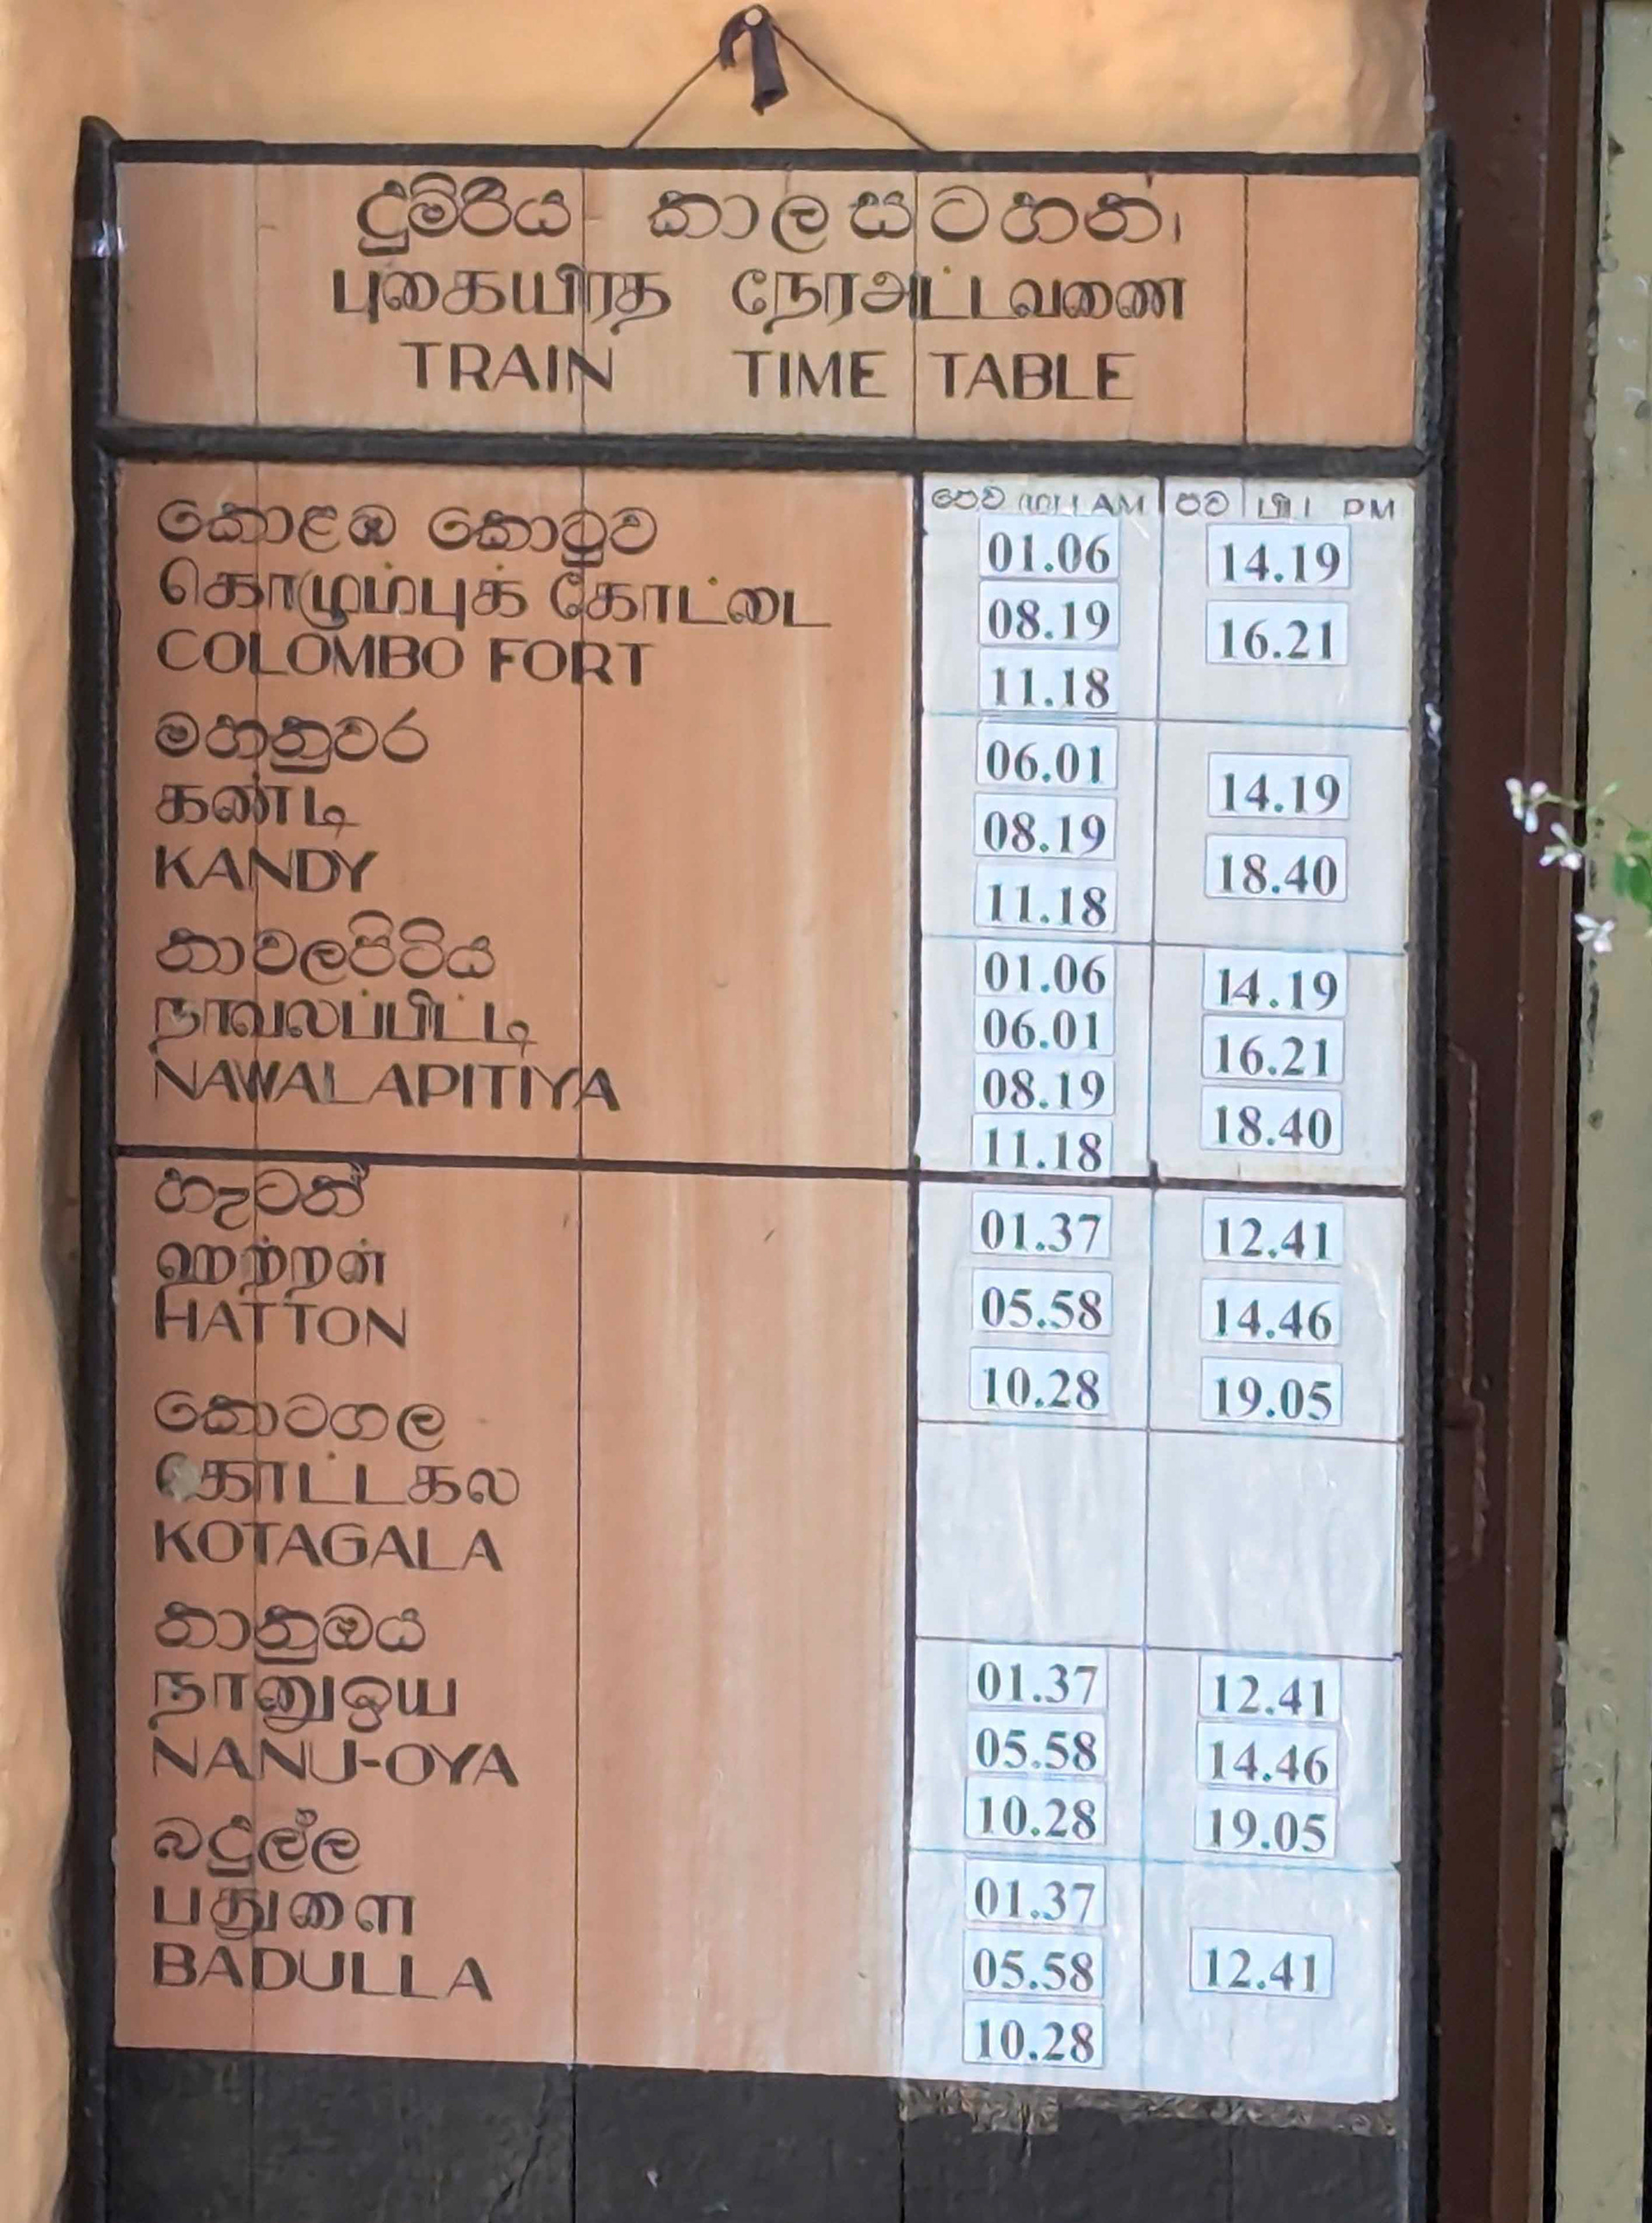 දුම්රිය කාලසටහන්
புகையிரத நேரஅட்டவணை
TRAIN TIME TABLE
පෙව மு.ப AM පව பி.ப PM
කොළඹ කොටුව
கொழும்புக் கோட்டை
COLOMBO FORT
01.06 14.19
08.19 16.21
11.18
මහනුවර
கண்டி
KANDY
06.01 14.19
08.19 18.40
11.18
නාවලපිටිය
நாவலப்பிட்டி
NAWALAPITIYA
01.06 14.19
06.01 16.21
08.19 18.40
11.18
හැටන්
ஹற்றன்
HATTON
01.37 12.41
05.58 14.46
10.28 19.05
කොටගල
கொட்டகல
KOTAGALA
නානුඔය
நானுஓய
NANU-OYA
01.37 12.41
05.58 14.46
10.28 19.05
බදුල්ල
பதுளை
BADULLA
01.37
05.58 12.41
10.28